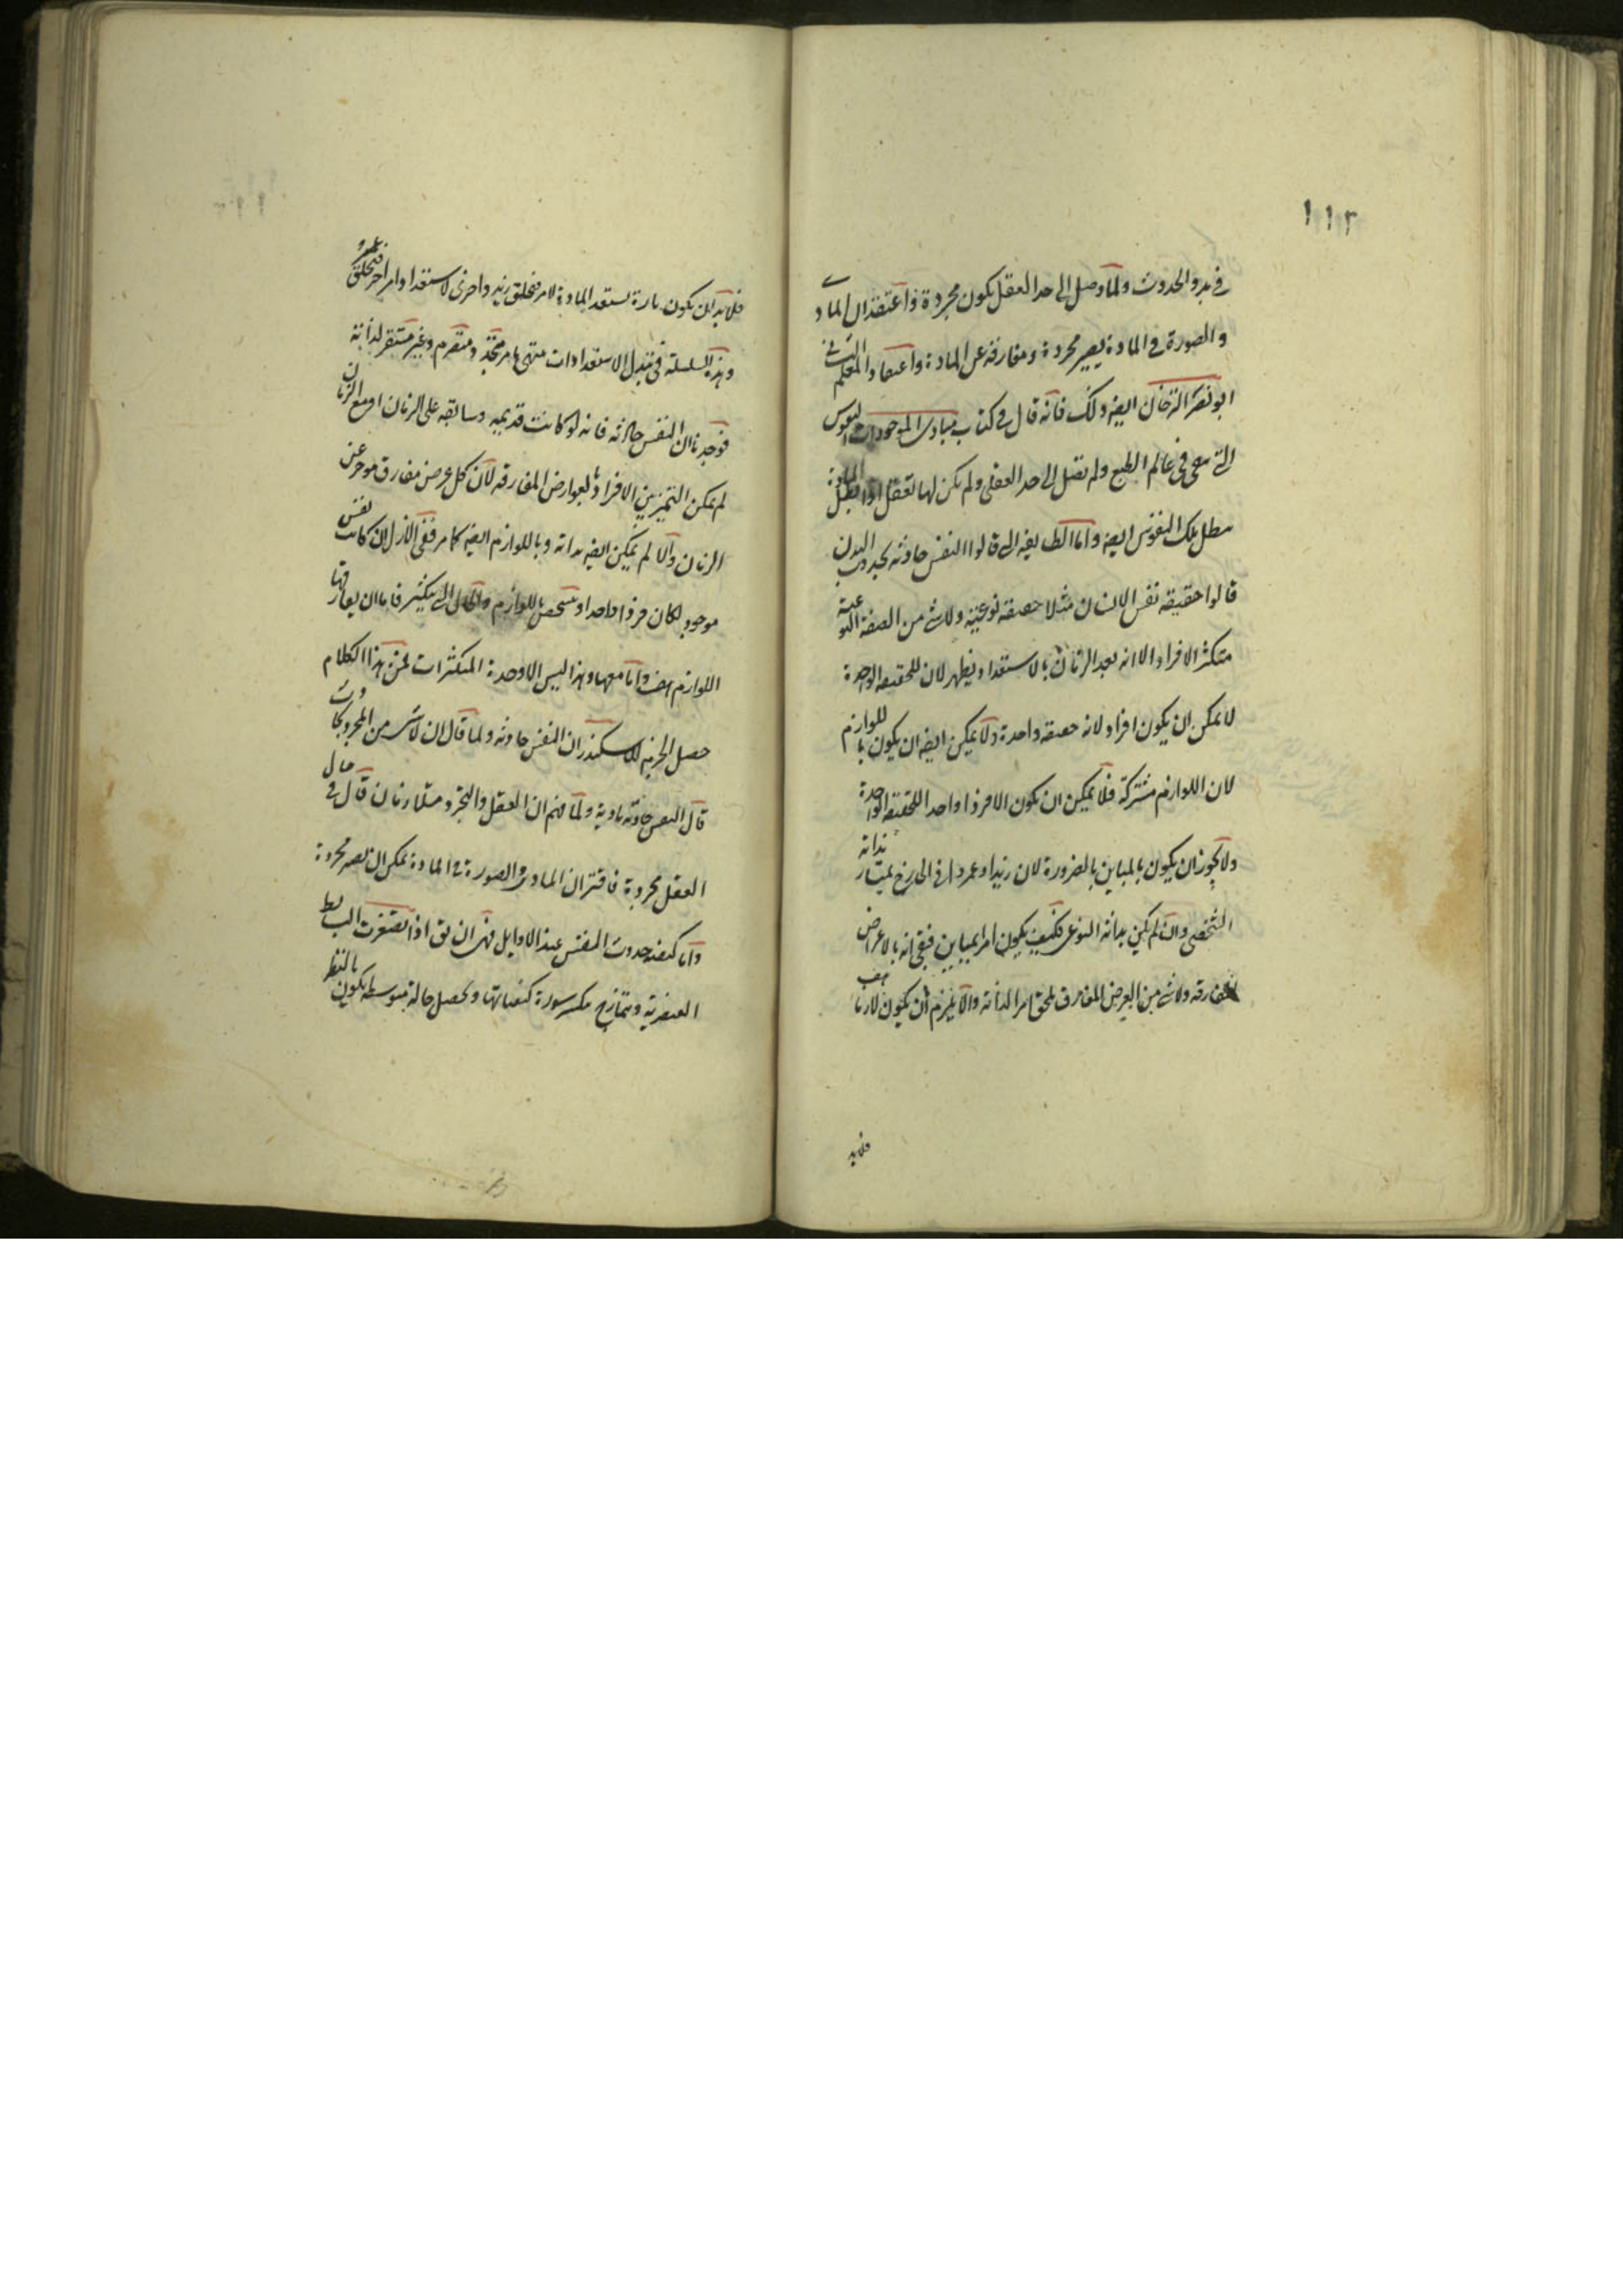 ١١٢
فى بدو الحدوث ولما وصل الى حد العقل يكون مجردة فاعتقد ان المادى
والصورة فى المادة يصير مجردة ومفارقة عن المادة واعتقاد المعلم الثانى
ابو نصر ايضا ذلك فانه قال فى كتاب مبادى الموجودات النفوس
التى هى فى عالم الطبع ولم تصل الى حد العقل ولم يكن لها تعقل اذا بطل المادة
بطل تلك النفوس ايضا واما الطايفة التى قالوا النفس حادثه بحدوث البدن
قالوا حقيقه نفس الانسان مثلا حقيقه نوعيه ولاشى من الصفة النوعية
متكثر الافراد الا انه بعد الزمان بالاستعداد يظهر لان للحقيقه الواحدة
لا يمكن ان يكون افراد لانه حقيقه واحدة ولا يمكن ايضا ان يكون باللوازم
لان اللوازم مشتركة فلا يمكن ان يكون الا فردا واحدا للحقيقه الواحدة
ولا يجوز ان يكون بالمباين بالضرورة لان زيدا وعمروا فى الخارج يمتاز بذاته
الشخصى وان لم يكن بذاته النوعى فكيف يكون امرا يباين فبقى انه بالاعراض
المفارقه ولاشى من العرض المفارق يلحق امرا لذاته والا يلزم ان يكون لازما هف
فلابد
فلا بد ان يكون تارة يستعد المادة لامر فيخلق زيد واخرى لاستعداد امر اخر فيخلق عمرو
وهذه السلسلة فى تبدل الاستعدادات منتهى بامر متجدد ومتصرم وغير مستقر لذاته
فوجدنا ان النفس حادثه فانه لو كانت قديمه وسابقه على الزمان او مع الزمان
لم يمكن التميز بين الافراد بالعوارض المفارقه لان كل عرض مفارق موخر عن
الزمان والا لم يمكن ايضا بذاته وباللوازم ايضا كما مر ففى الازل ان كانت نفس
موجود لكان فردا واحدا وتشخص باللوازم والحال التى يتكثر فاما ان يفارقها
اللوازم هف واما معها وهذا ليس الا وحدة المتكثرات فمن هذا الكلام
حصل الجزم للاسكندر ان النفس حادثه ولما قال ان لاشى من المجرد بحادث
قال النفس حادثه مادية ولما فهم ان العقل والتجرد متلازمان قال فى حال
العقل مجردة فاقتر ان المادى والصورة فى المادة يمكن ان يصير مجردة
واما كيفيه حدوث النفس عند الاوايل فهى ان يق اذا تصغرت البسايط
العنصرية وتمتازج يكسر سورة كيفياتها ويحصل حالة متوسطه يكون بالنظر